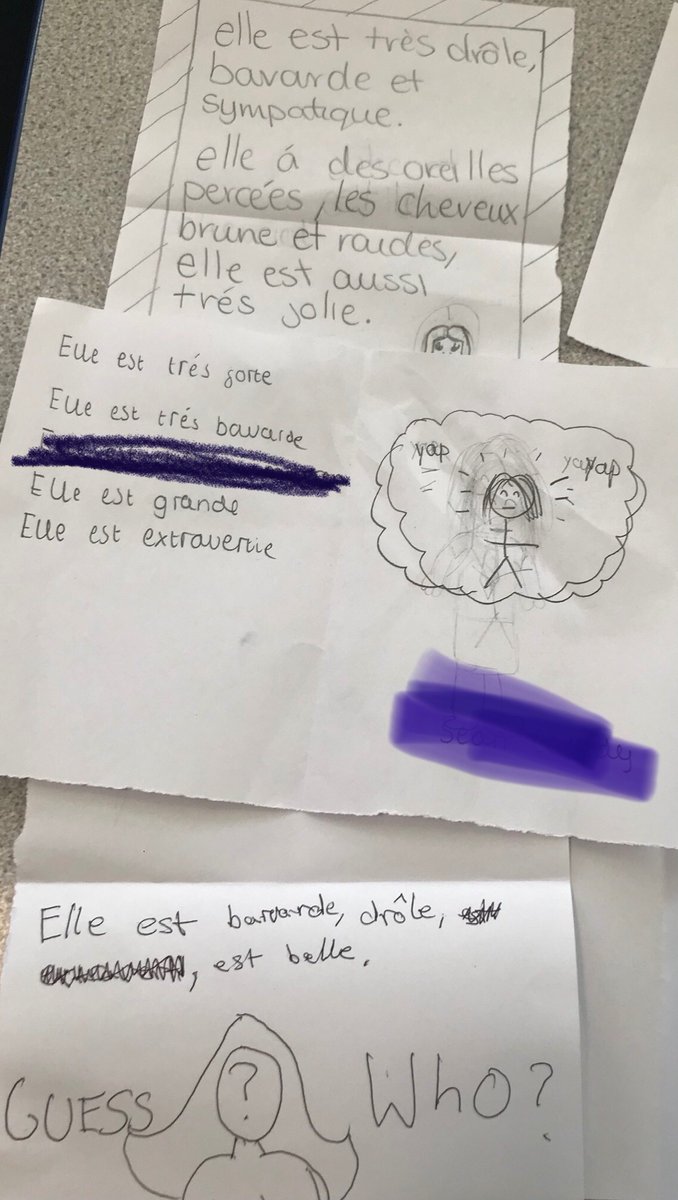 elle est très drôle,
bavarde et
sympatique.
elle á des oreilles
percées, les cheveux
brune et raides,
elle est aussi
trés jolie.
Elle est trés forte
Elle est trés bavarde
Elle est grande
Elle est extravertie
yap
yap yap
Elle est bavarde, drôle,
, est belle.
GUESS ? WHO?